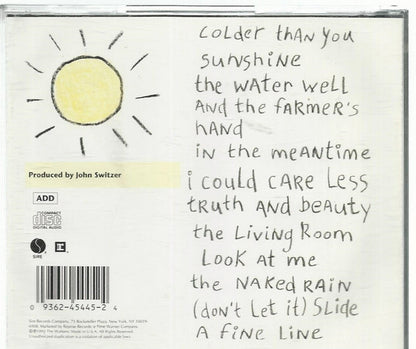 colder than you
sunshine
the water well
and the farmer's
hand
in the meantime
i could care less
truth and beauty
the living room
look at me
the naked rain
(don't let it) slide
a fine line
Produced by John Switzer
ADD
COMPACT
disc
DIGITAL AUDIO
SIRE
R
0 9362-45445-2 4
Sire Records Company, 75 Rockefeller Plaza, New York, NY 10019-
6908. Marketed by Reprise Records, a Time Warner Company.
Made in U.S.A.
Unauthorized duplication is a violation of applicable laws.